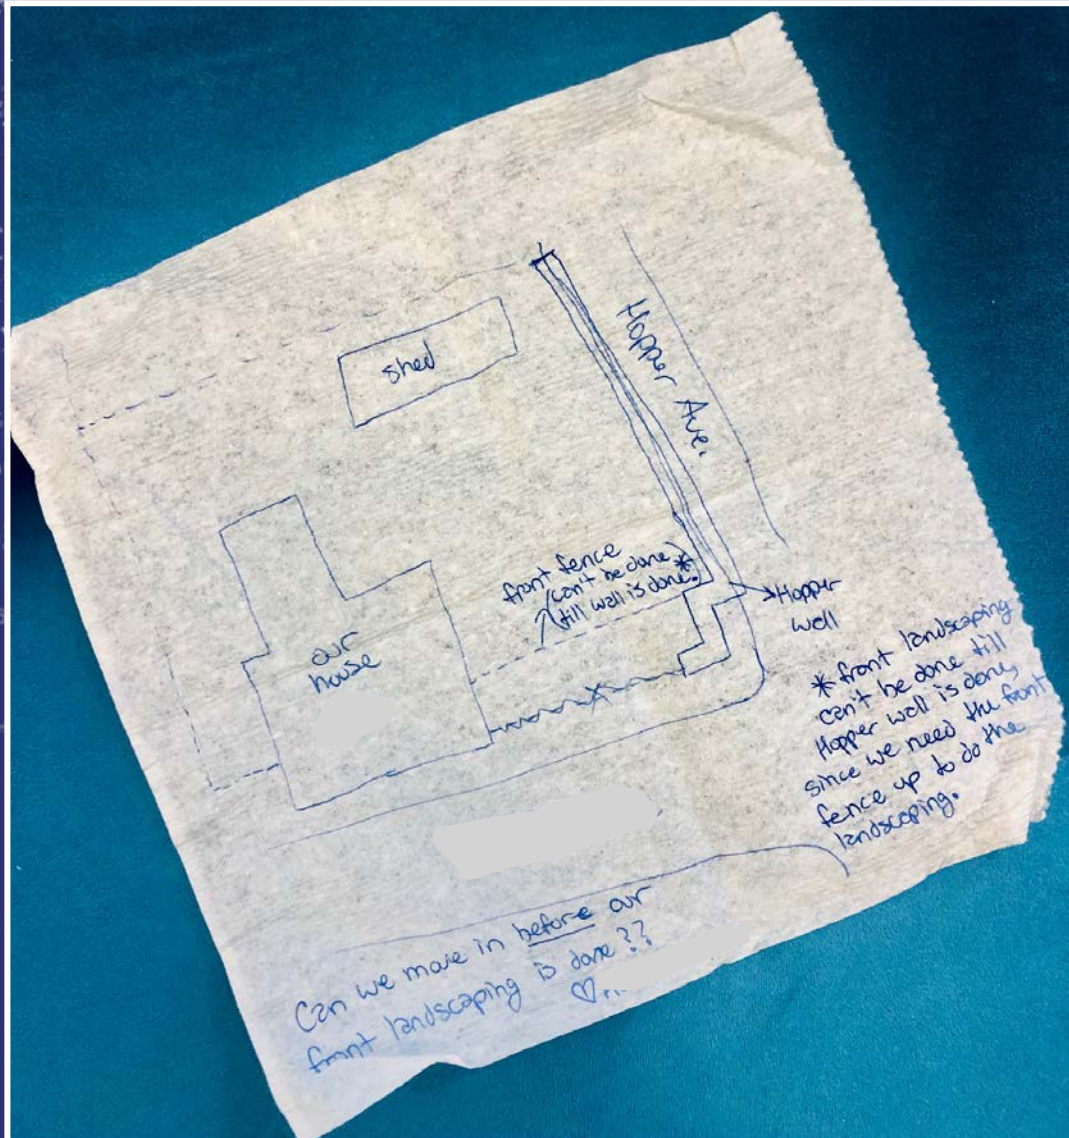 shed
Hopper Ave.
front fence
(can't be done
till wall is done.)*
our
house
Hopper
wall
* front landscaping
can't be done till
Hopper wall is done,
since we need the front
fence up to do the
landscaping.
Can we move in before our
front landscaping is done??
♡